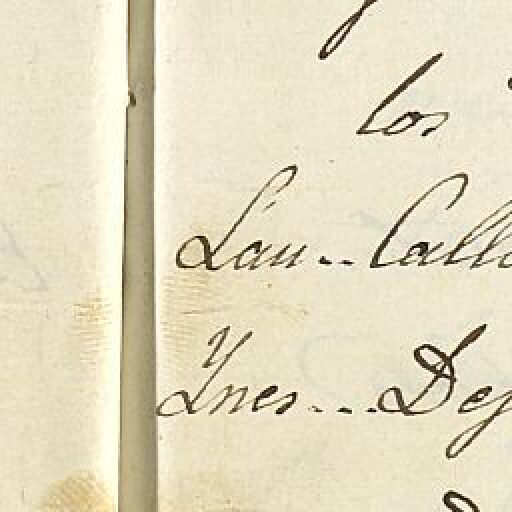 los
Lau.. Call
Ynes... Dej